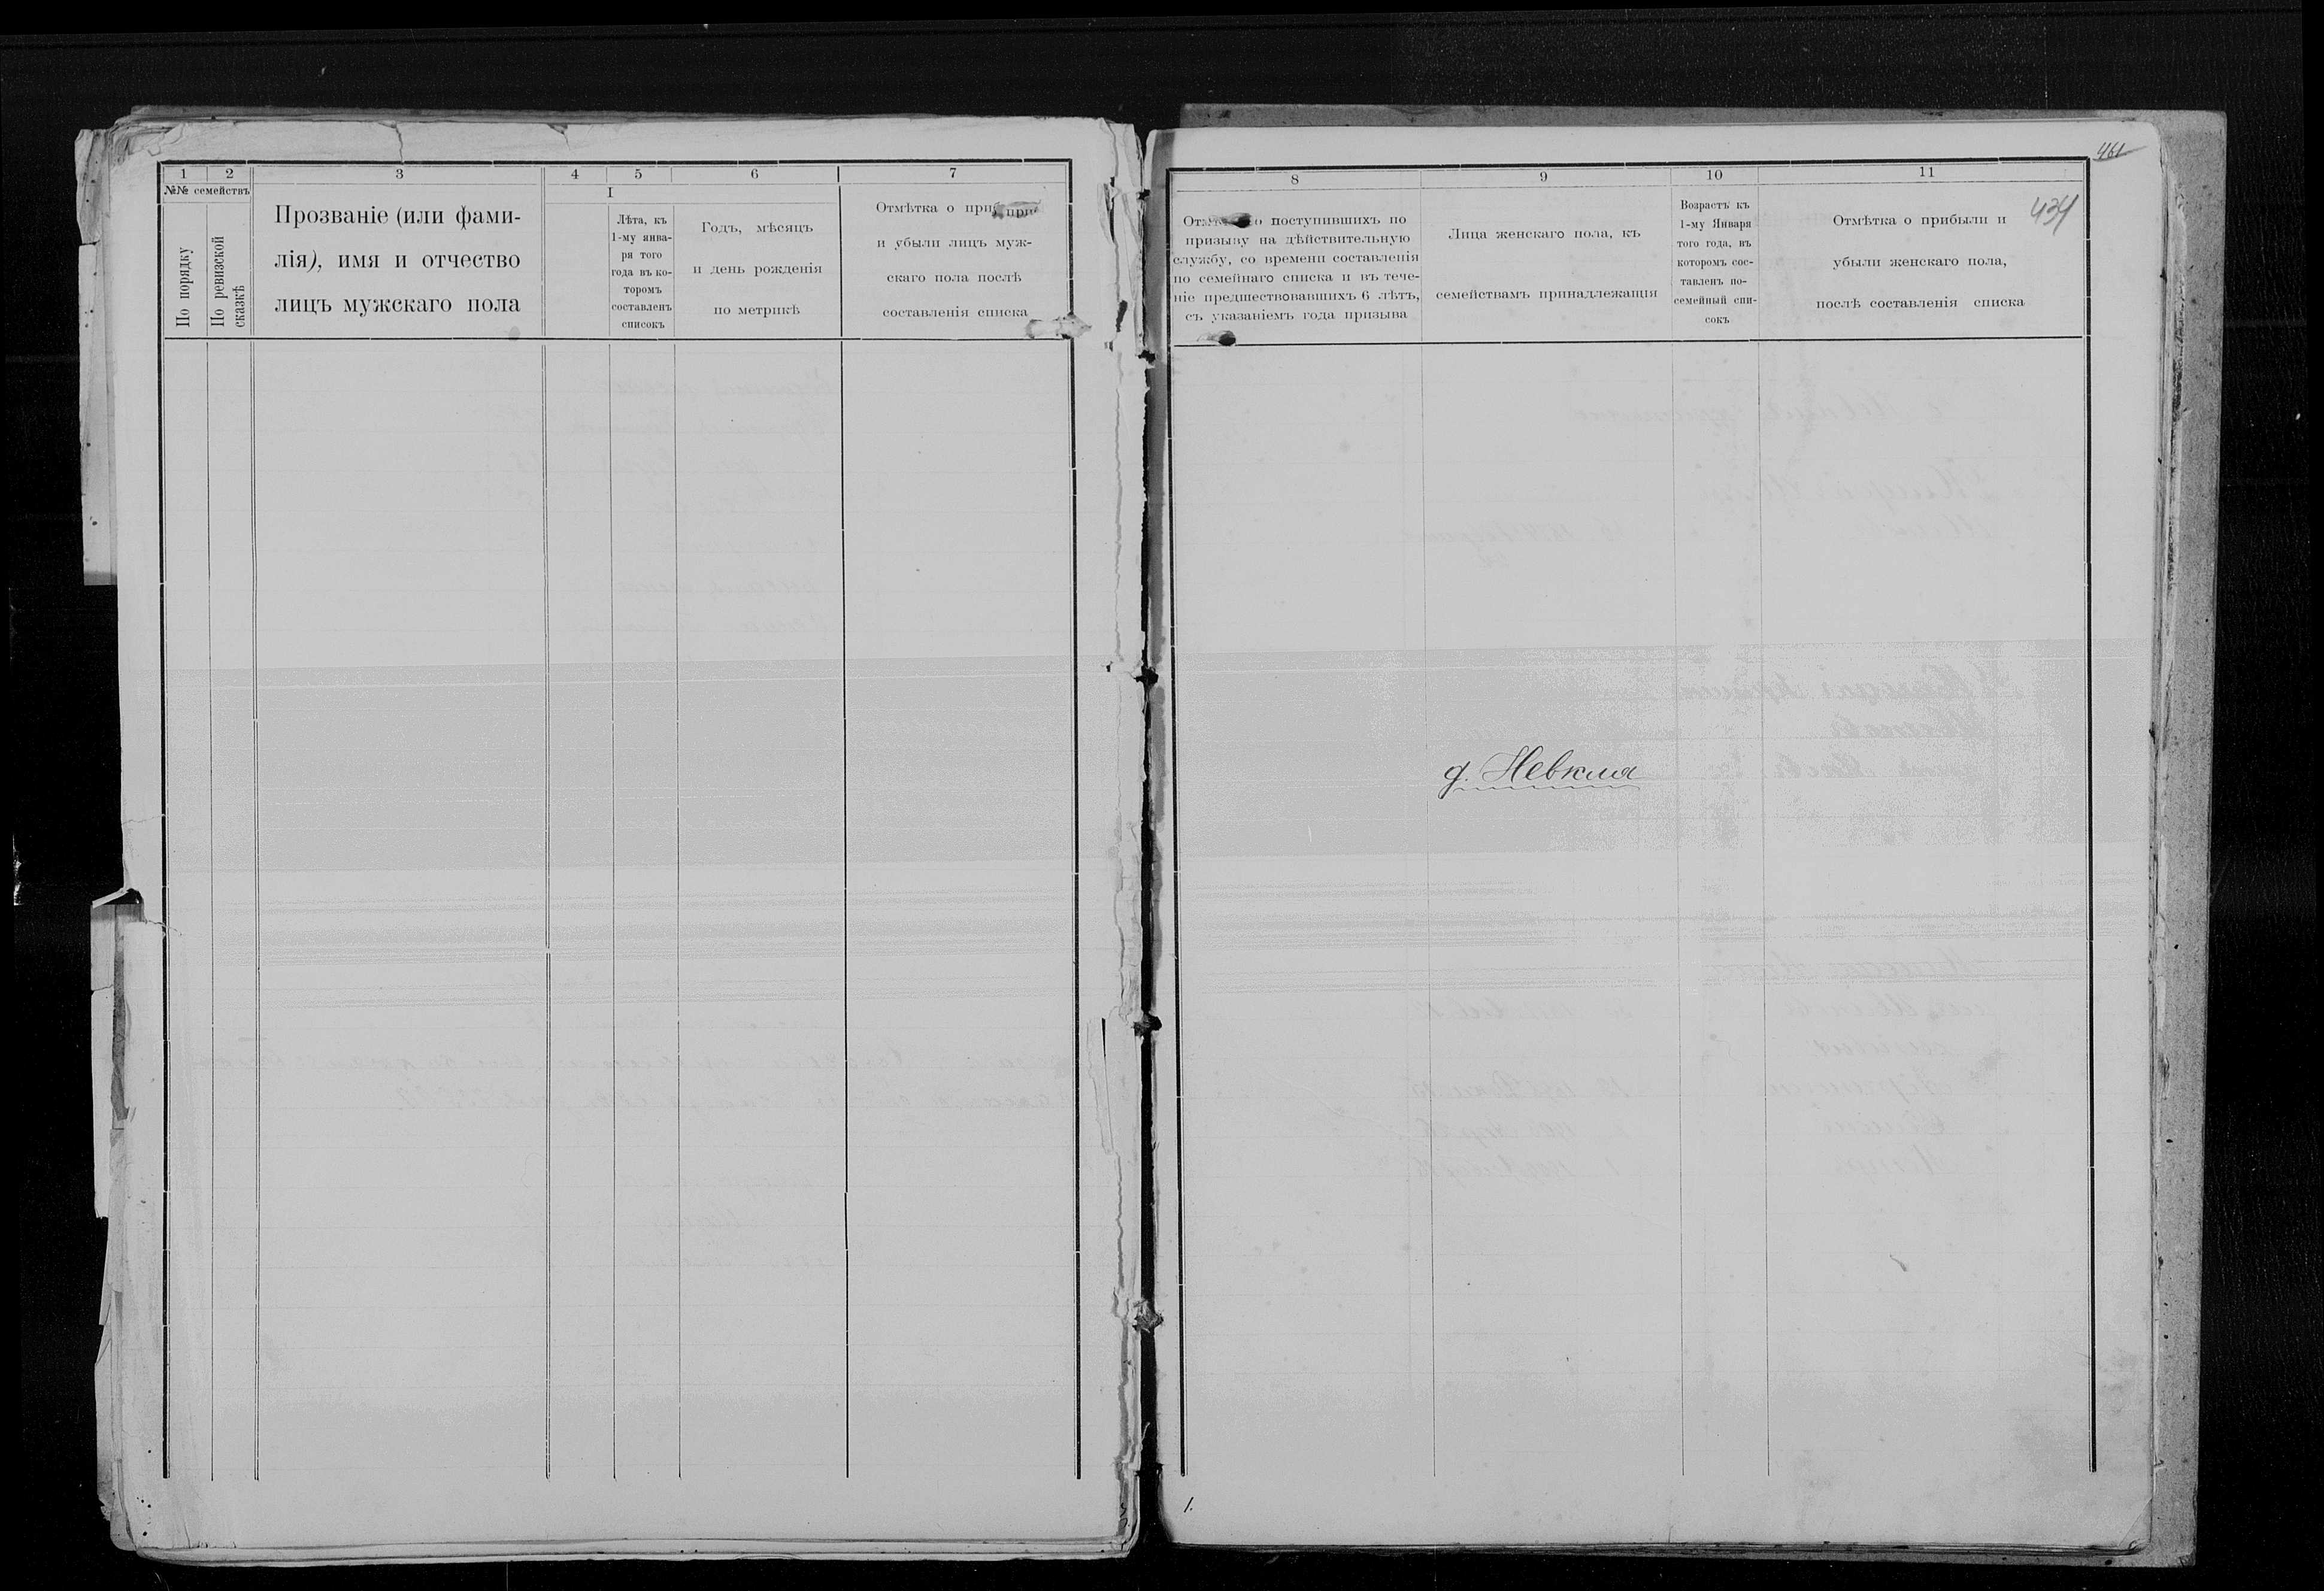 1 2 3 4 5 6 7
№№ семействъ
По порядку
По ревизской сказкѣ
Прозваніе (или фами-
лія), имя и отчество
лицъ мужскаго пола
I
Лѣта, къ
1-му янва-
ря того
года въ ко-
торомъ
составленъ
списокъ
Годъ, мѣсяцъ
и день рожденія
по метрикѣ
Отмѣтка о
и убыли лицъ муж-
скаго пола послѣ
составленія списка
461
8 9 10 11
434
о поступившихъ по
призыву на дѣйствительную
службу, со времени составленія
по семейнаго списка и въ тече-
ніе предшествовавшихъ 6 лѣтъ,
съ указаніемъ года призыва
Лица женскаго пола, къ
семействамъ принадлежащія
Возрастъ къ
1-му Января
того года, въ
которомъ сос-
тавленъ по-
семейный спи-
сокъ
Отмѣтка о прибыли и
убыли женскаго пола,
послѣ составленія списка
д. Невкля
1.